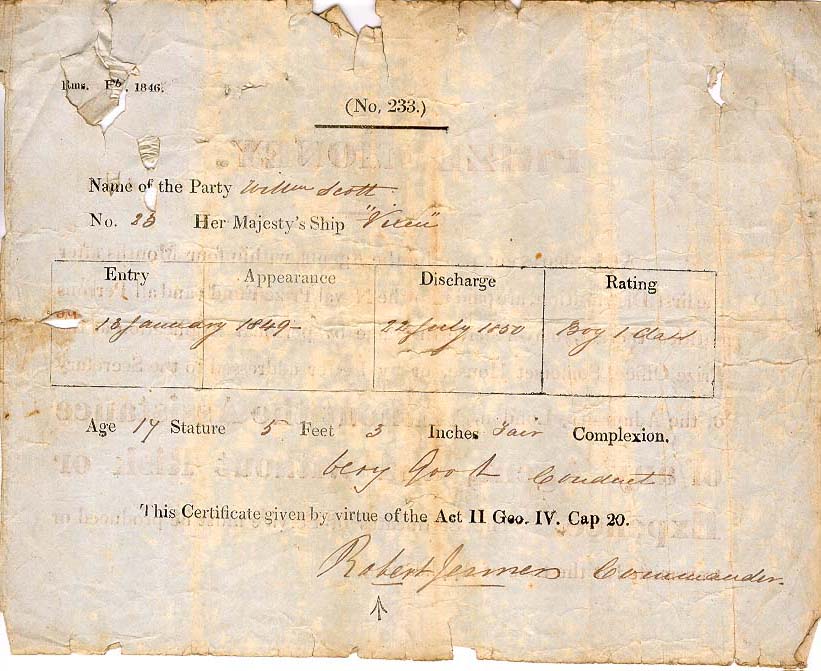 Rms. Fb, 1846.
(No, 233.)
Name of the Party Willm Scott
No. 25 Her Majesty's Ship
Entry Appearance Discharge Rating
13 January 1849 22 July 1850 Boy 1 Class
Age 17 Stature 5 Feet 3 Inches Fair Complexion.
Very Good Conduct
This Certificate given by virtue of the Act II Geo. IV. Cap 20.
Robert Jenner Commander.